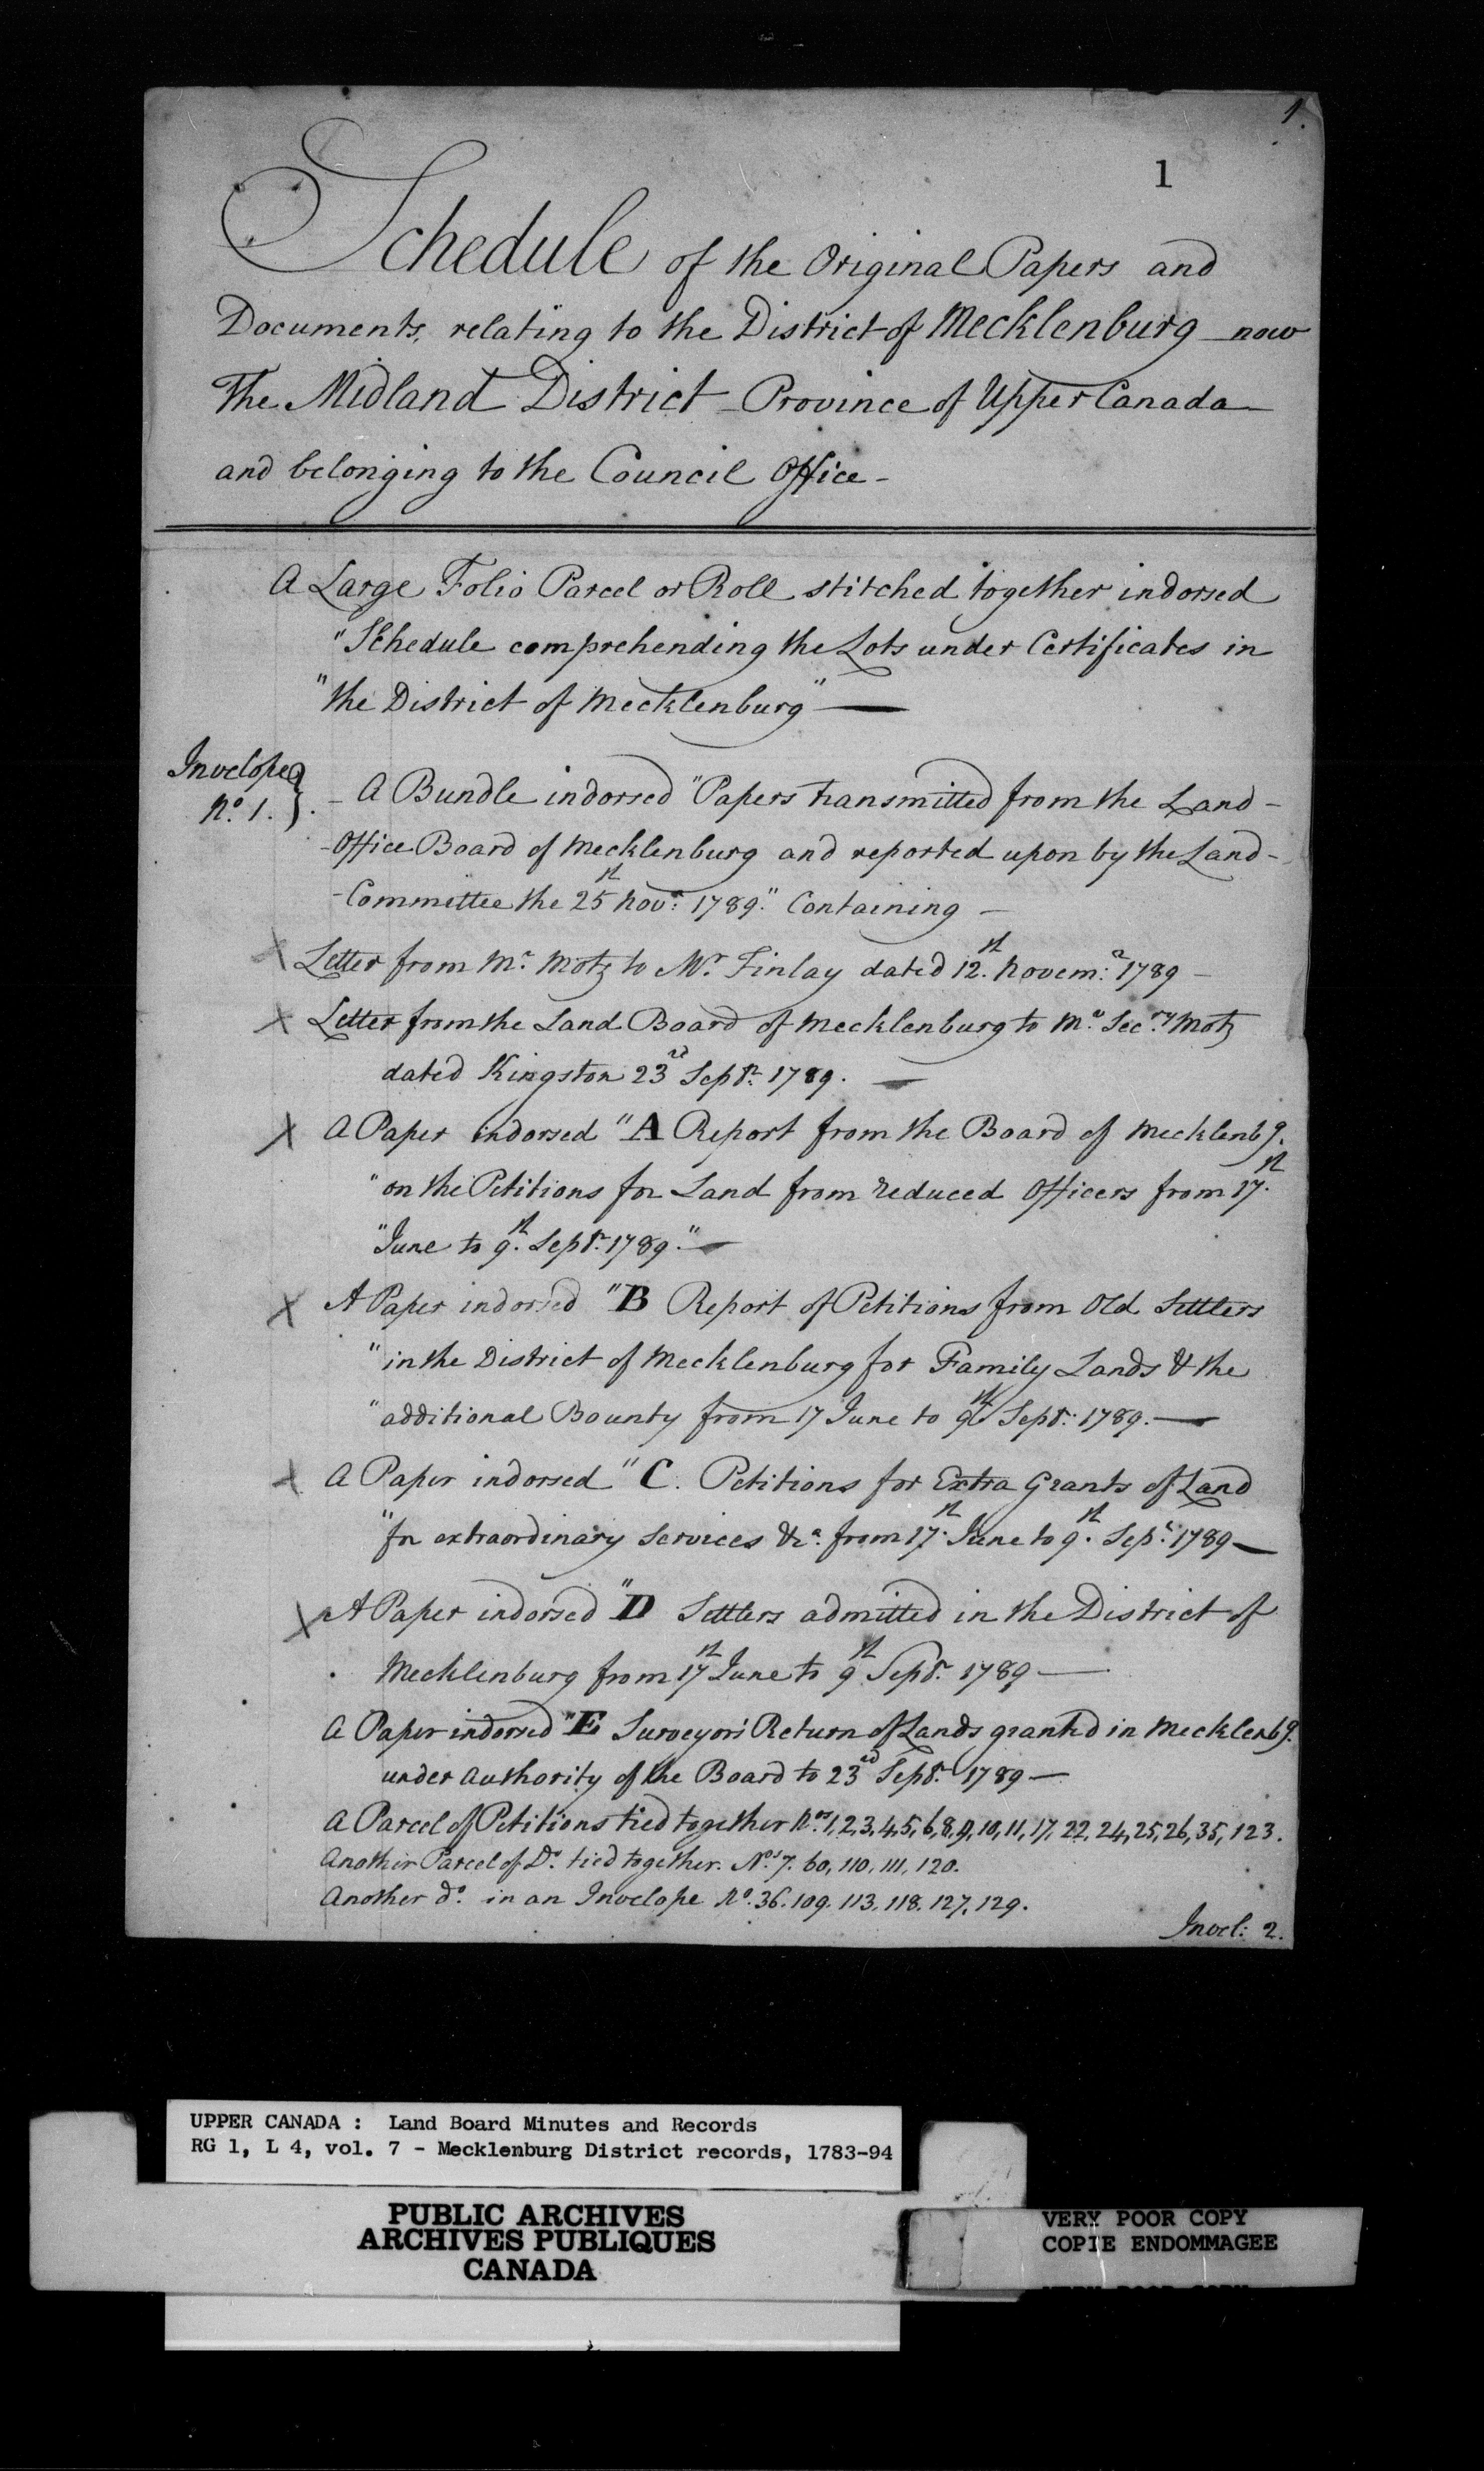 1.
1
Schedule of the Original Papers and
Documents, relating to the District of Mecklenburg now
The Midland District – Province of Upper Canada –
and belonging to the Council Office –
A Large Folio Parcel or Roll stitched together indorsed
"Schedule comprehending the Lots under Certificates in
"the District of Mecklenburg" —
Invelope
No. 1. }. – A Bundle indorsed "Papers transmitted from the Land –
– Office Board of Mecklenburg and reported upon by the Land –
– Committee the 25th Novr. 1789." Containing –
X Letter from Mr. Motz to Mr. Finlay dated 12th. Novem:r 1789 –
X Letter from the Land Board of Mecklenburg to Mr. Secry. Motz
dated Kingston 23rd Septr. 1789. —
X A Paper indorsed "A Report from the Board of Mecklenbg.
"on the Petitions for Land from reduced Officers from 17th.
"June to 9th. Septr. 1789." —
X A Paper indorsed "B Report of Petitions from Old Settlers
"in the District of Mecklenburg for Family Lands & the
"additional Bounty from 17 June to 9th Septr. 1789. —
X A Paper indorsed "C. Petitions for Extra Grants of Land
"for extraordinary Services &ca. from 17th. June to 9th. Sepr. 1789 —
X A Paper indorsed "D Settlers admitted in the District of
Mecklenburg from 17th June to 9th Septr. 1789 —
A Paper indorsed "E Surveyors Return of Lands granted in Mecklenbg.
under authority of the Board to 23rd Septr. 1789 —
A Parcel of Petitions tied together Nos. 1, 2, 3, 4, 5, 6, 8, 9, 10, 11, 17, 22, 24, 25, 26, 35, 123.
Another Parcel of Do. tied together. Nos. 7. 60, 110, 111, 120.
Another do. in an Invelope No. 36. 109. 113. 118. 127, 129.
Invel: 2.
UPPER CANADA : Land Board Minutes and Records
RG 1, L 4, vol. 7 - Mecklenburg District records, 1783-94
PUBLIC ARCHIVES
ARCHIVES PUBLIQUES
CANADA
VERY POOR COPY
COPIE ENDOMMAGEE
VERY POOR COPY